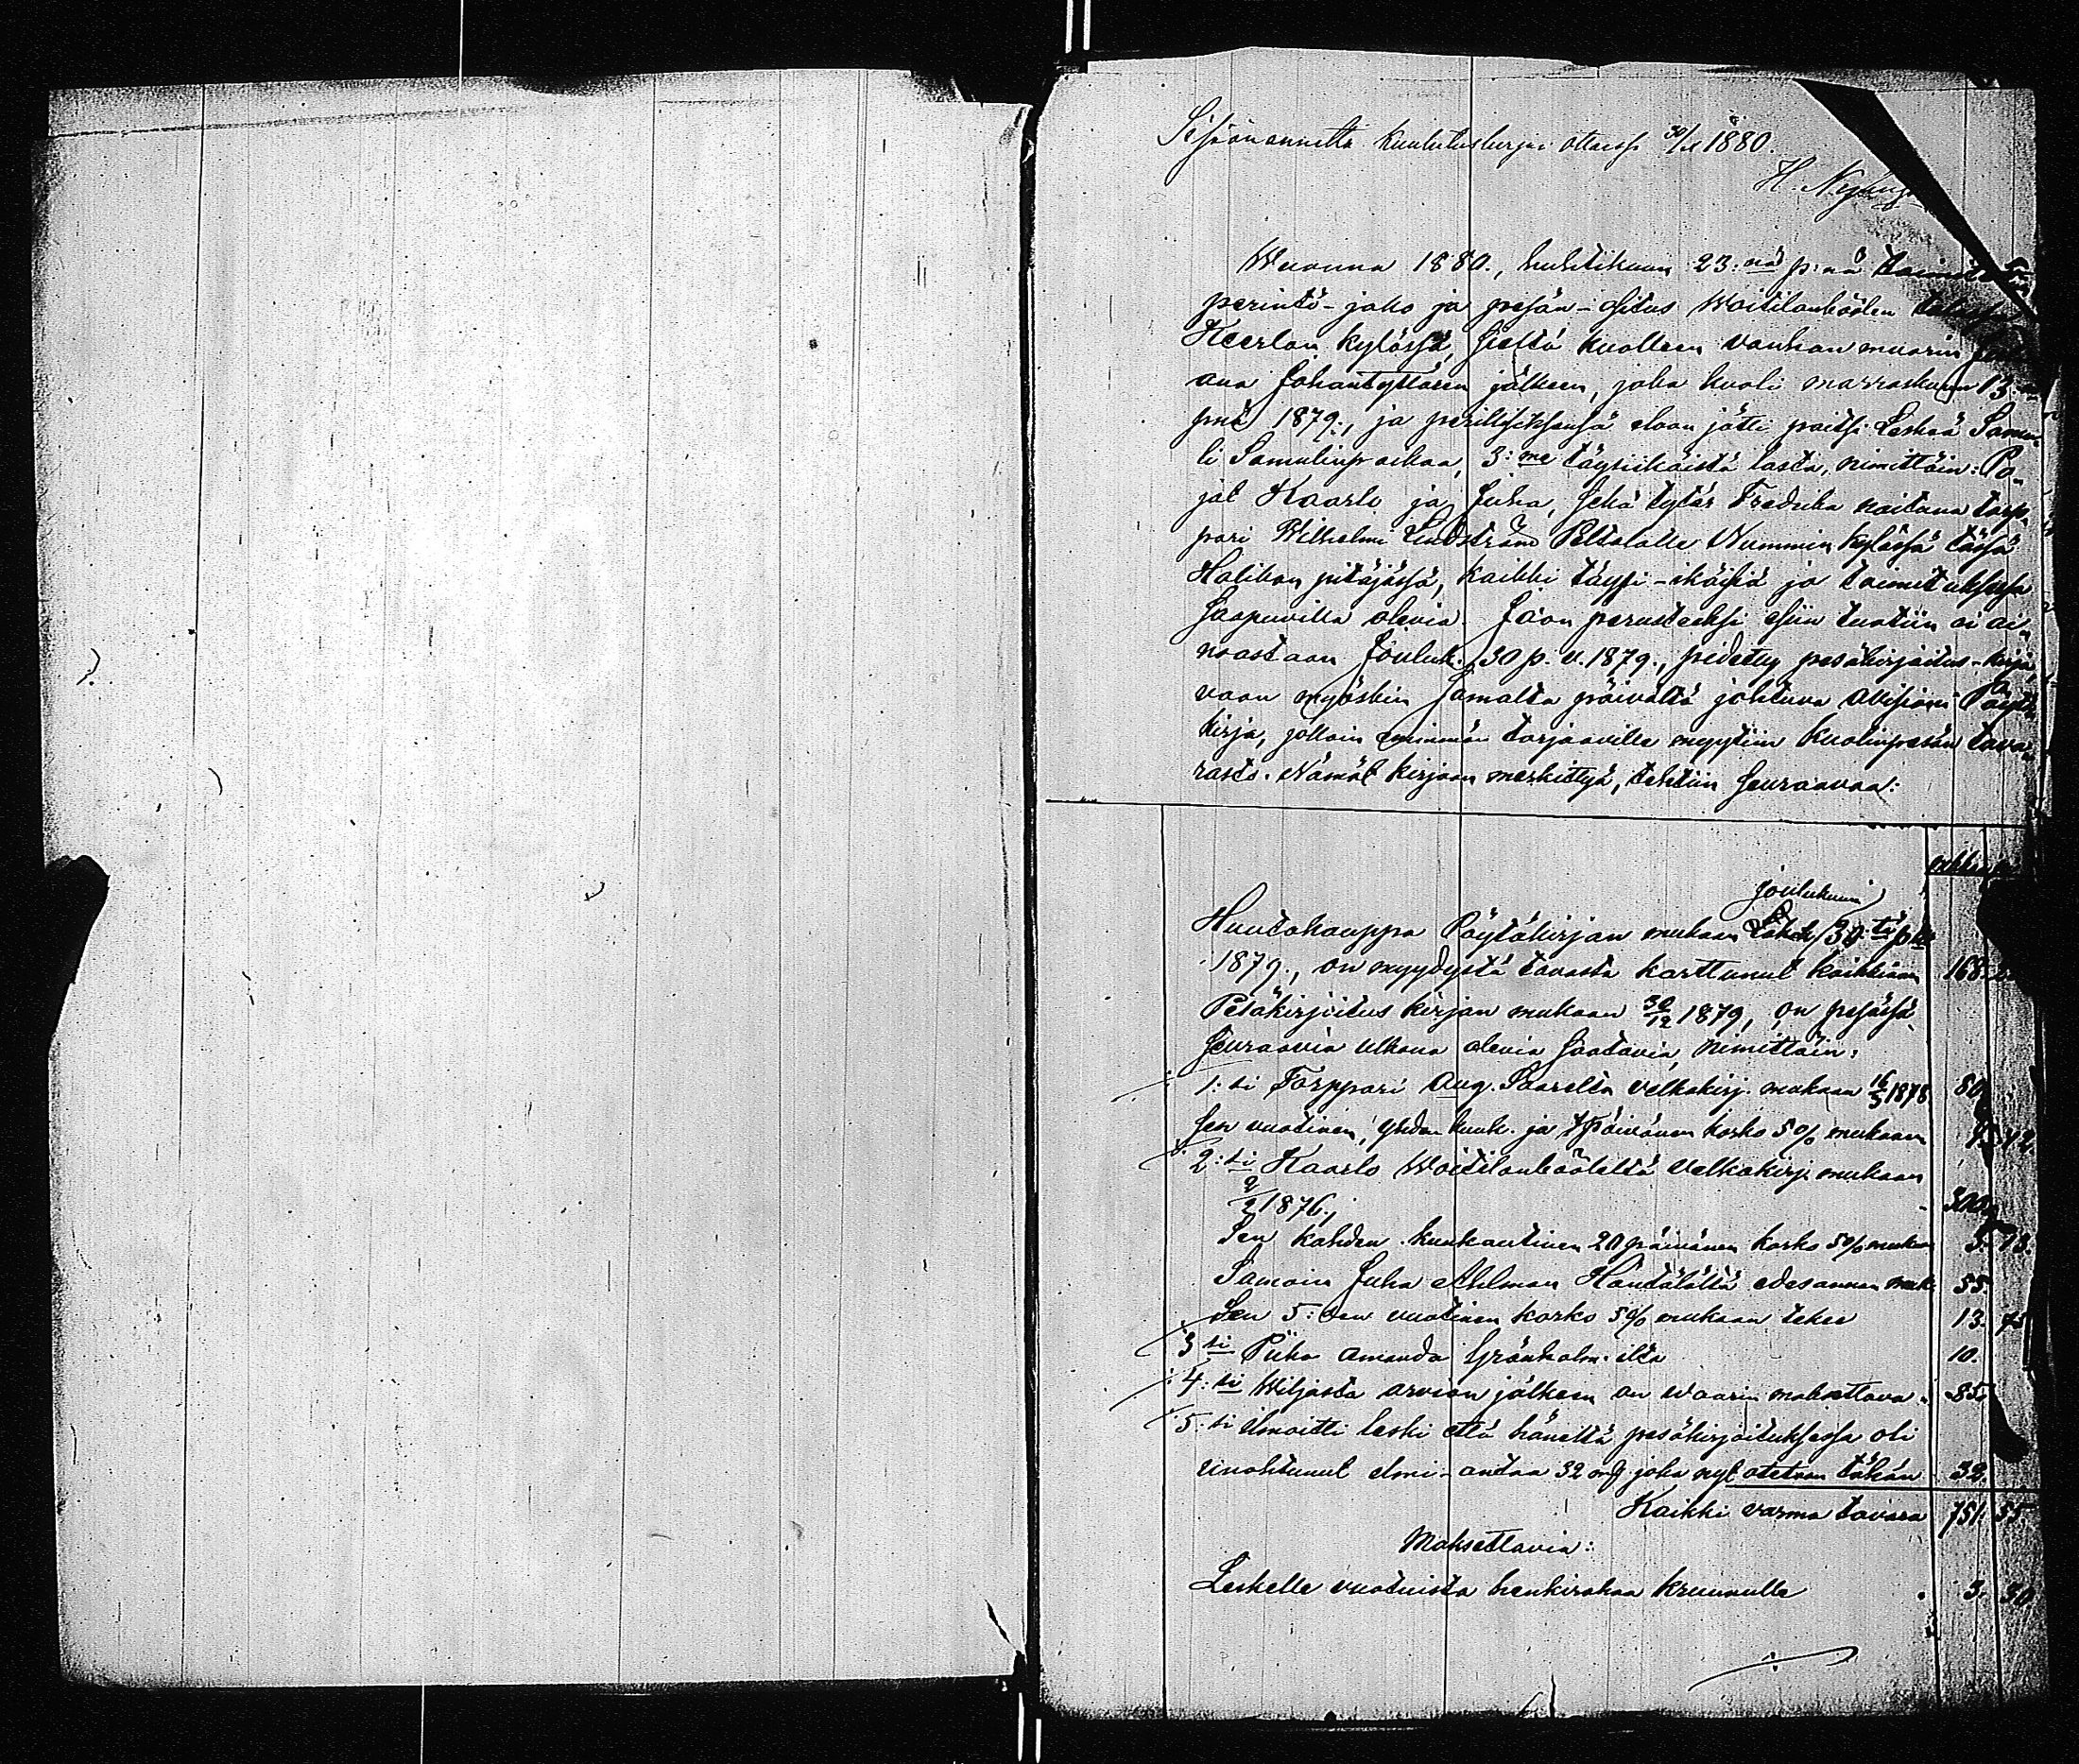 Sisäänannettu kuulutuskirjan ottaessa 30/11 1880.
H. Nyberg
Wuonna 1880., huhtikuun 23:nä p:nä
perintö-jako ja pesän-ositus Woitilanköölen talossa
Keerlan kylässä, Sieltä kuolleen vanhan muorin
ana Johantyttären jälkeen, joka kuoli marraskuun 13:
pnä 1879., ja perillisiksensä eloon jätti paitsi Leskeä Samu-
li Samulinpoikaa, 3:me täysiikäistä lasta, nimittäin: Po-
jat Kaarlo ja Juha, Sekä tytär Fredrika naituna torp-
pari Wilhelmi Lindström Peltolalle Nummin kylässä tässä
Halikon pitäjässä, kaikki täysi-ikäisiä ja toimituksessa
Saapuvilla olevia. Jaon perusteeksi esiin tuotiin ei ai-
noastaan Jouluk. 30 p. v. 1879., pidetty pesäkirjoitus-kirja,
vaan myöskin Samalta päivältä johtuva Auksioni-Pöytä
kirja, jolloin enimmän tarjoaville myytiin kuolinpesän tava-
rasto. Nämät kirjaan merkittyä, tehtiin Seuraavaa:
joulukuun
Huutokauppa Pöytäkirjan mukaan 30:tä p:
1879., on myydystä tavarasta karttunut kaikkiaan 168.
Pesäkirjoitus kirjan mukaan 30/12 1879, on pesässä
Seuraavia ulkona olevia Saatavia, nimittäin:
1:si Torppari Aug. Saarelta velkakirj. mukaan 16/3 1878 80
Sen vuotinen, yhden kuuk. ja 7 päivänen korko 5% mukaan
2:si Kaarlo Woitilanköölältä velkakirj. mukaan
2/2 1876., 300.
Sen kahden kuukautinen 20 päivänen korko 5% mukaan
Samoin Juha Ahlman Häntälältä edesannon muk 55.
Sen 5:den vuotinen korko 5% mukaan tekee 13. 75
3:si Piika Amanda Grönholm:ilta 10.
4:si Wiljasta arvion jälkeen on vaarin maksettava 85.
5:si ilmoitti leski että häneltä pesäkirjoituksessa oli
unohtunut ilmi-antaa 32 mk joka nyt otetaan tähän 32.
Kaikki varma tavara 751. 55
Maksettavia:
Leskelle vuotuista henkirahaa kruunulle 3. 30